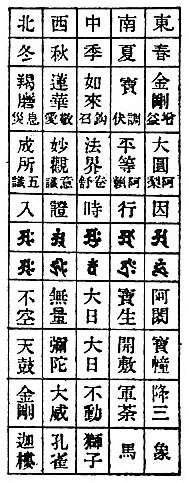 東 春 金剛 增益 大圓 阿梨 因 阿閦 寶幢 降三 象
南 夏 寶 調伏 平等 行 寶生 開敷 軍茶 馬
中 季 如來 鉤召 法界 時 大日 大日 不動 獅子
西 秋 蓮華 敬愛 妙觀 意識 證 無量 彌陀 大威 孔雀
北 冬 羯磨 息災 成所 五識 入 不空 天鼓 金剛 迦樓